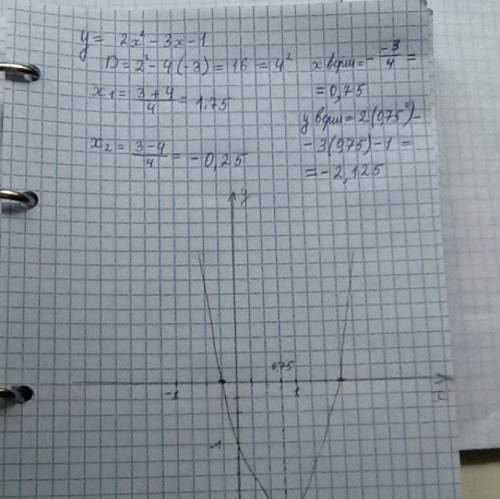 y = 2x² - 3x - 1
D = 2² - 4(-3) = 16 = 4²
x₁ = (3+4)/4 = 1.75
x₂ = (3-4)/4 = -0,25
x верш = - (-3)/4 =
= 0,75
y верш = 2(0,75²) -
- 3(0,75) - 1 =
= -2,125
y
0,75
-1
1
x
-1